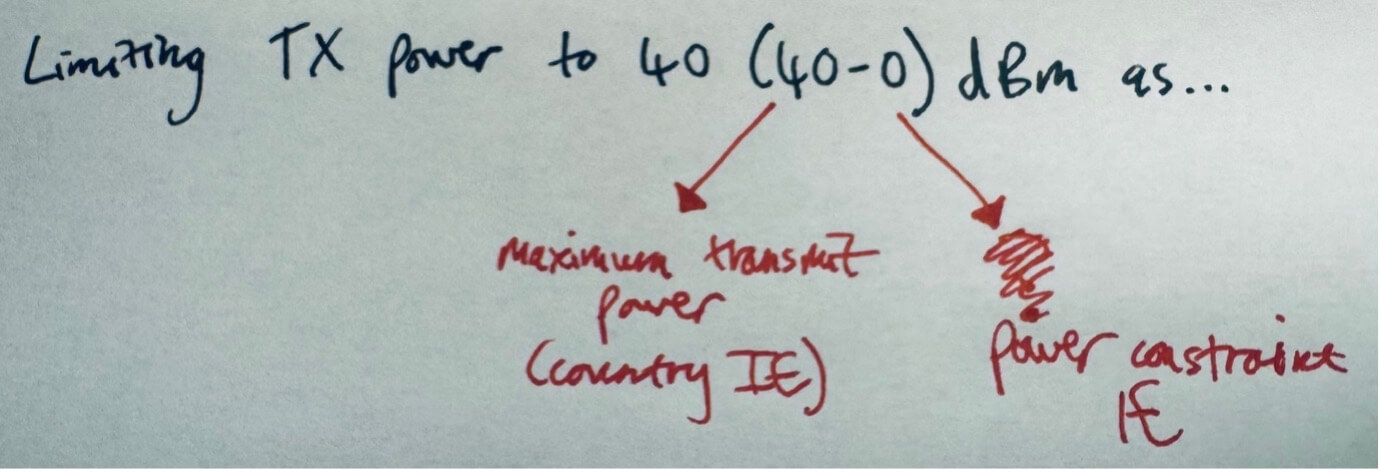 Limiting TX power to 40 (40-0) dBm as...
Maximum transmit
power
(country IE)
power constraint
IE